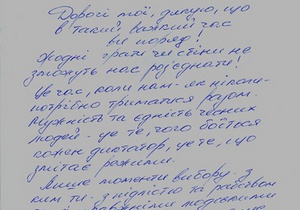 Дорогі мої, дякую, що
в такий важкий час
ви поряд!
Жодні грати чи стіни не
зможуть нас роз'єднати!
Це час, коли нам - як ніколи -
потрібно триматися разом.
Мужність та єдність чесних
людей - це те, чого боїться
кожен диктатор, це те, що
змітає режими.
Лише моменти вибору. З
ким ти - з гідністю та рабством